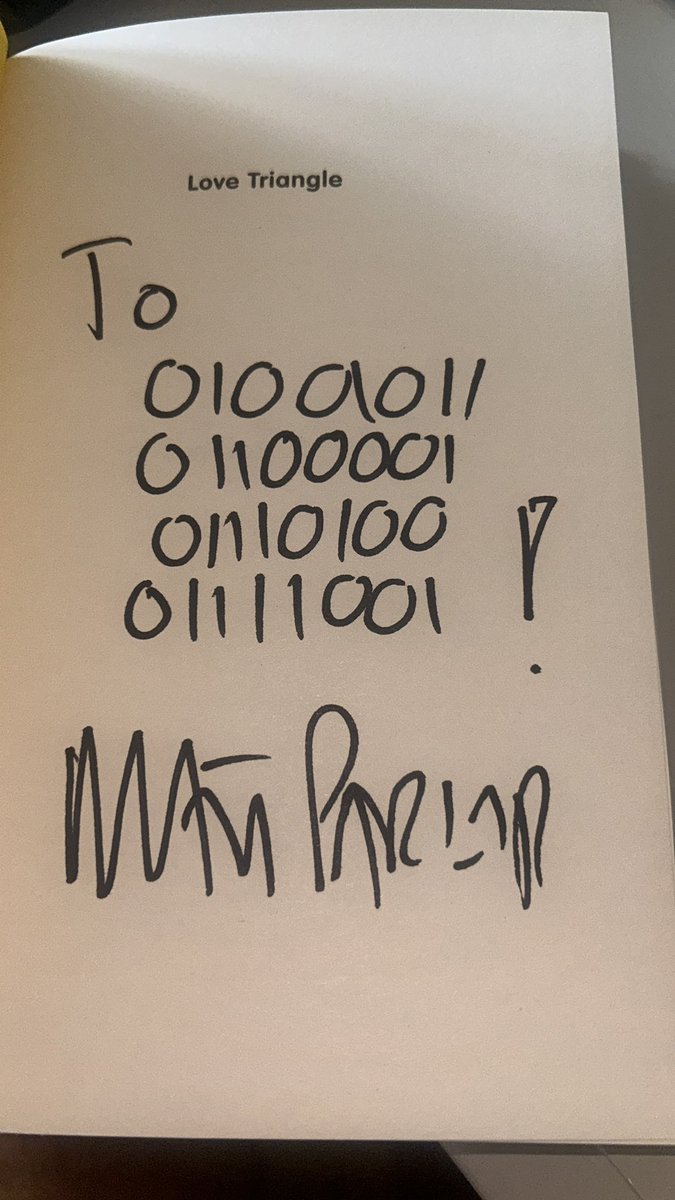 Love Triangle
To
01001011
01100001
01110100
01111001 !
MATT PARKER